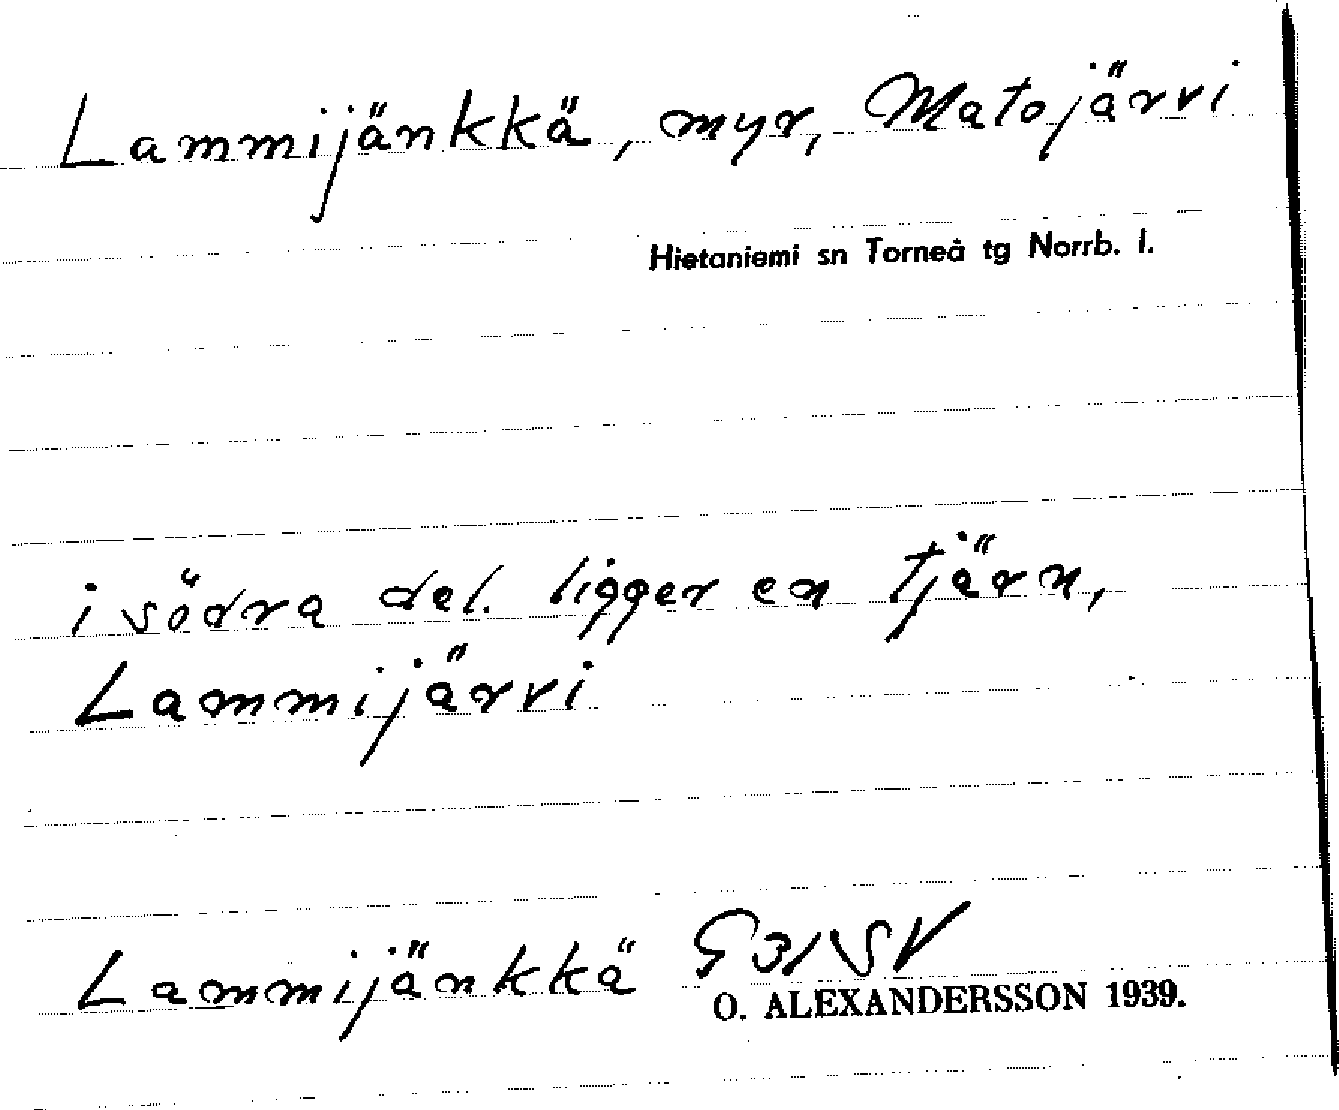 Lammijänkkä, myr, Matojärvi
Hietaniemi sn Torneå tg Norrb. l.
i södra del. ligger en tjärn,
Lammijärvi
Lammijänkkä G31SV
O. ALEXANDERSSON 1939.